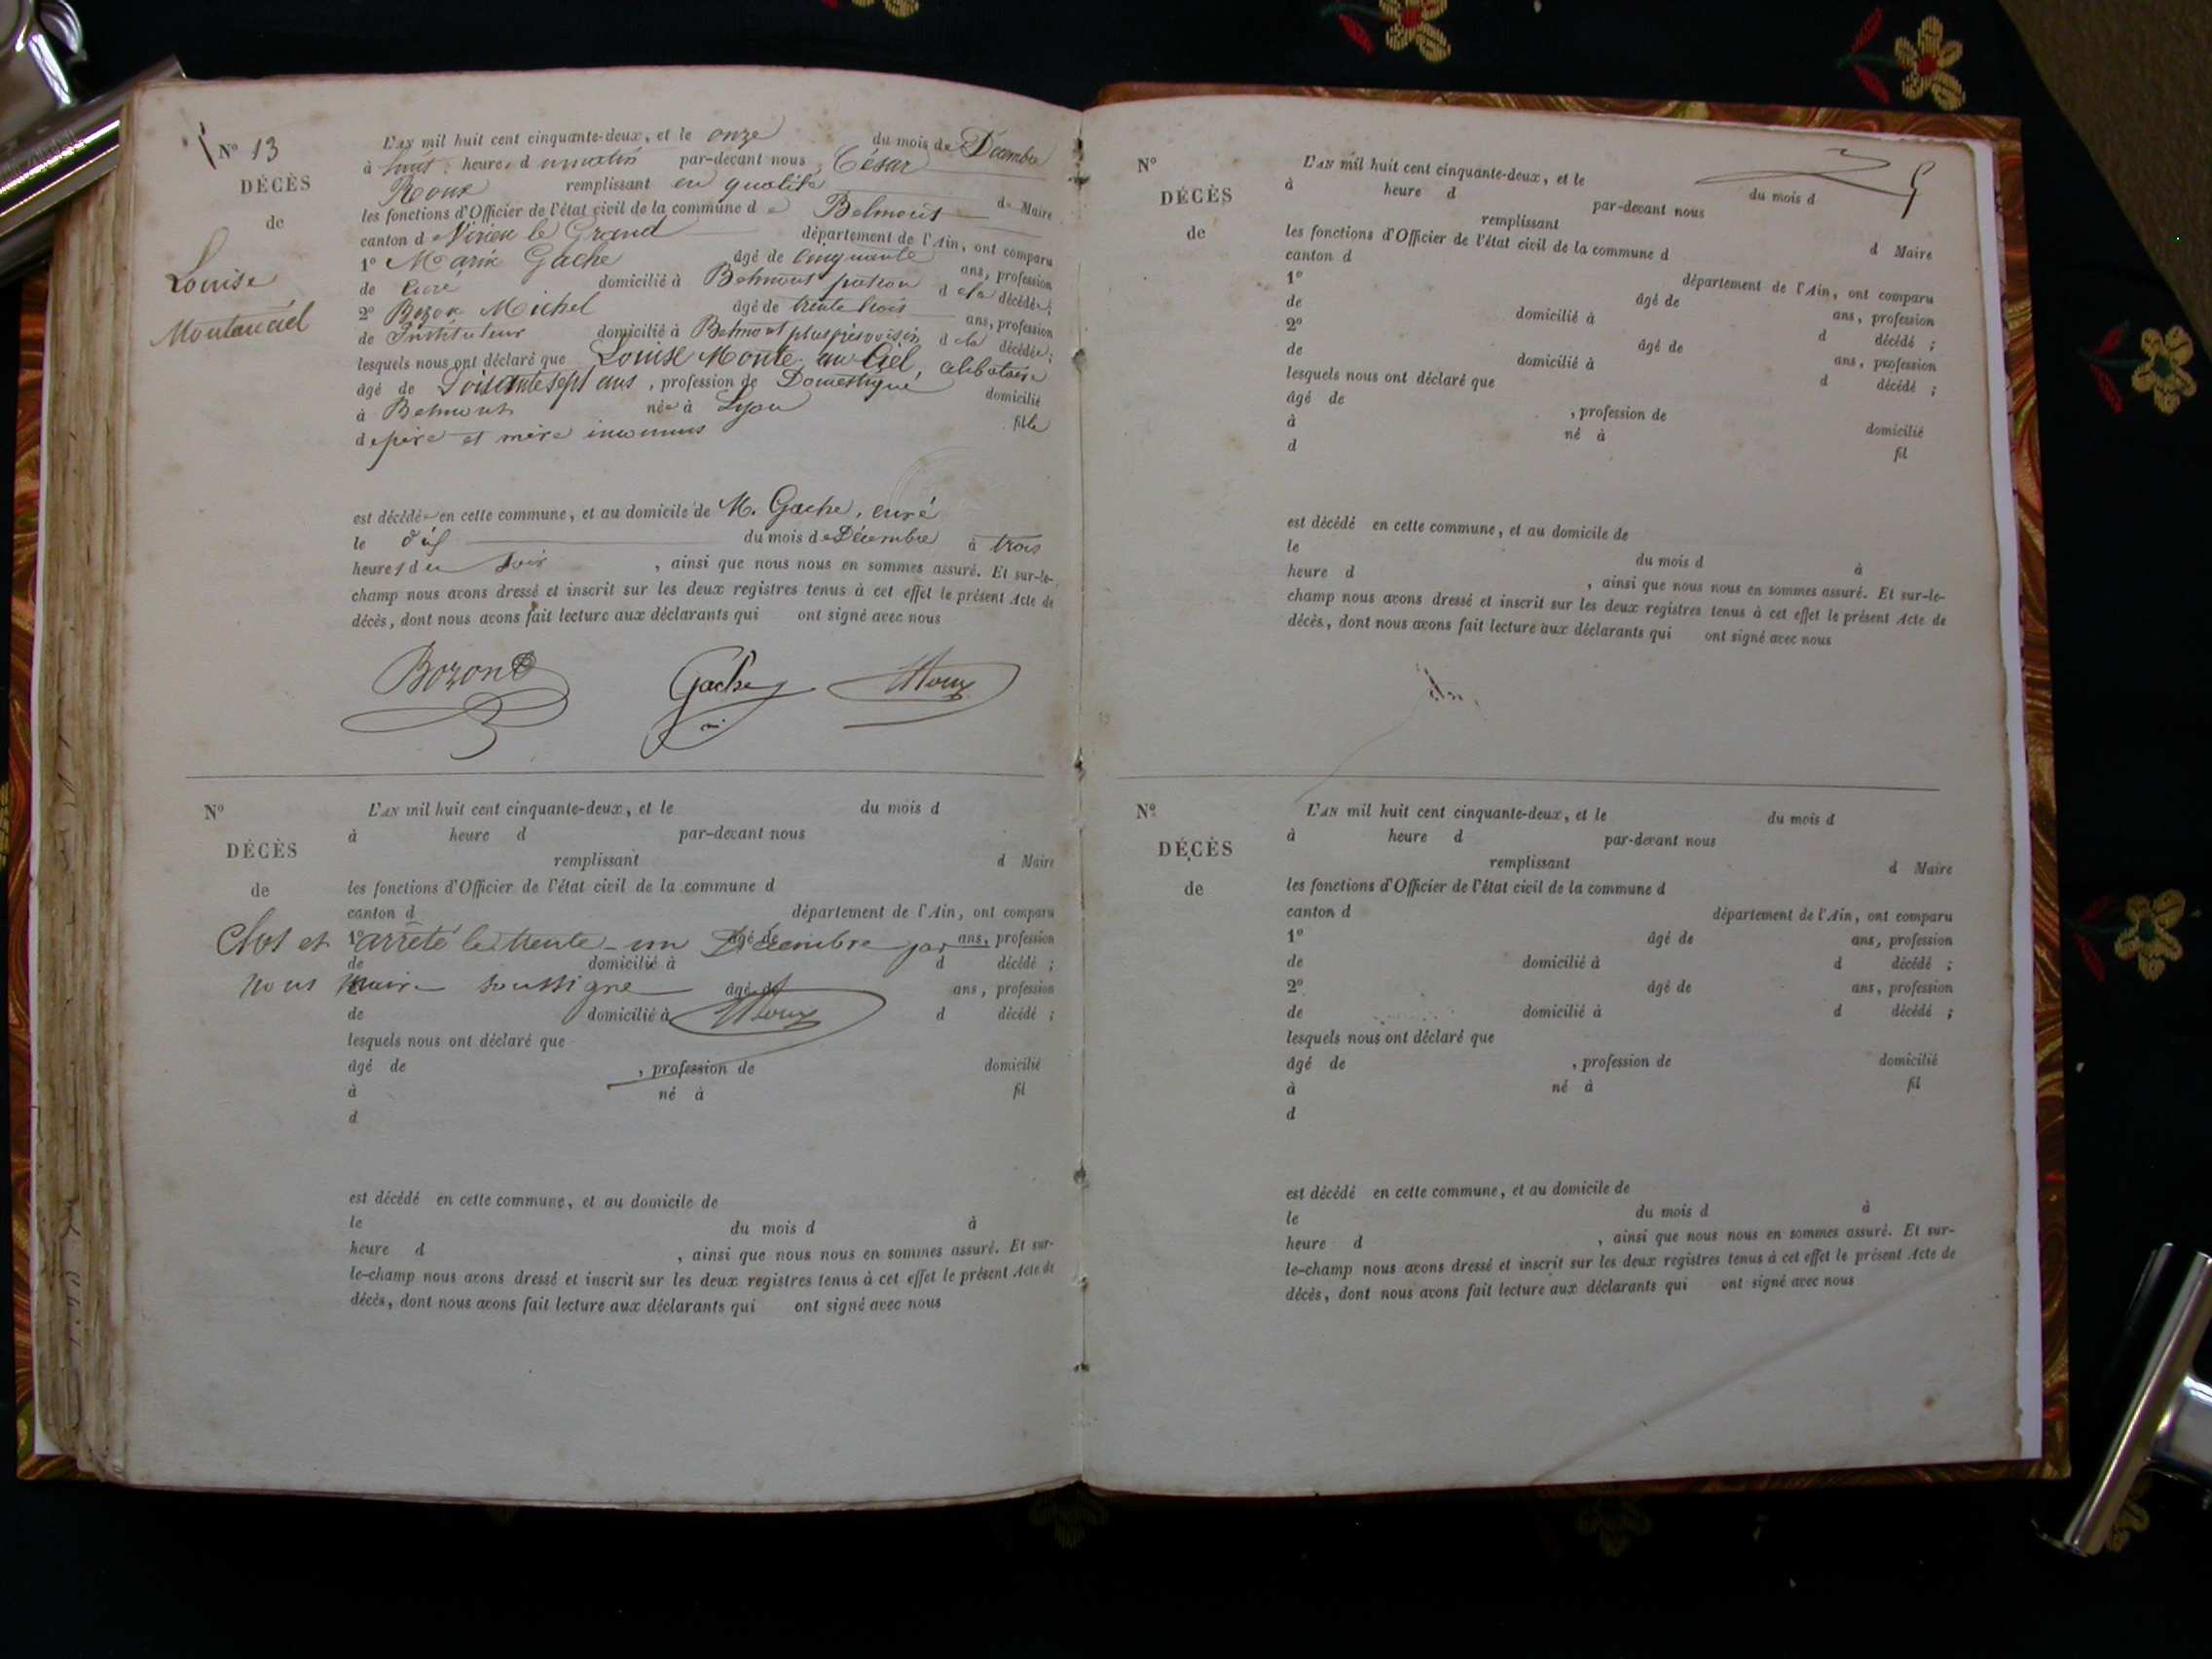 N° 13
DÉCÈS
de
Louise
Montauciel
L'AN mil huit cent cinquante-deux, et le onze du mois de Décembre
à huit heures du matin par-devant nous César
Roux remplissant en qualité de Maire
les fonctions d'Officier de l'état civil de la commune de Belmont
canton de Virieu le Grand département de l'Ain, ont comparu
1° Marin Gache âgé de cinquante ans, profession
de Curé domicilié à Belmont patron de la décédée;
2° Bozon Michel âgé de trente trois ans, profession
de Instituteur domicilié à Belmont plus près voisin de la décédée;
lesquels nous ont déclaré que Louise Monte au Ciel, célibataire
âgé de Soixante sept ans, profession de Domestique domicilié
à Belmont née à Lyon fille
de père et mère inconnus
est décédée en cette commune, et au domicile de M. Gache, curé
le dix du mois de Décembre à trois
heures du soir, ainsi que nous nous en sommes assuré. Et sur-le-
champ nous avons dressé et inscrit sur les deux registres tenus à cet effet le présent Acte de
décès, dont nous avons fait lecture aux déclarants qui ont signé avec nous
Bozon Gache Roux
N°
DÉCÈS
de
L'AN mil huit cent cinquante-deux, et le du mois d
à heure d par-devant nous
remplissant d Maire
les fonctions d'Officier de l'état civil de la commune d
canton d département de l'Ain, ont comparu
Clos et arrêté le trente-un Décembre par
1° âgé de ans, profession
de domicilié à d décédé ;
nous Maire soussigné
âgé de ans, profession
Roux
de domicilié à d décédé ;
lesquels nous ont déclaré que
âgé de , profession de domicilié
à né à fil
d
est décédé en cette commune, et au domicile de
le du mois d à
heure d , ainsi que nous nous en sommes assuré. Et sur-
le-champ nous avons dressé et inscrit sur les deux registres tenus à cet effet le présent Acte de
décès, dont nous avons fait lecture aux déclarants qui ont signé avec nous
N°
DÉCÈS
de
L'AN mil huit cent cinquante-deux, et le du mois d
à heure d par-devant nous
remplissant d Maire
les fonctions d'Officier de l'état civil de la commune d
canton d département de l'Ain, ont comparu
1° âgé de ans, profession
de domicilié à d décédé ;
2° âgé de ans, profession
de domicilié à d décédé ;
lesquels nous ont déclaré que
âgé de , profession de domicilié
à né à fil
d
est décédé en cette commune, et au domicile de
le du mois d à
heure d , ainsi que nous nous en sommes assuré. Et sur-le-
champ nous avons dressé et inscrit sur les deux registres tenus à cet effet le présent Acte de
décès, dont nous avons fait lecture aux déclarants qui ont signé avec nous
N°
DÉCÈS
de
L'AN mil huit cent cinquante-deux, et le du mois d
à heure d par-devant nous
remplissant d Maire
les fonctions d'Officier de l'état civil de la commune d
canton d département de l'Ain, ont comparu
1° âgé de ans, profession
de domicilié à d décédé ;
2° âgé de ans, profession
de domicilié à d décédé ;
lesquels nous ont déclaré que
âgé de , profession de domicilié
à né à fil
d
est décédé en cette commune, et au domicile de
le du mois d à
heure d , ainsi que nous nous en sommes assuré. Et sur-
le-champ nous avons dressé et inscrit sur les deux registres tenus à cet effet le présent Acte de
décès, dont nous avons fait lecture aux déclarants qui ont signé avec nous